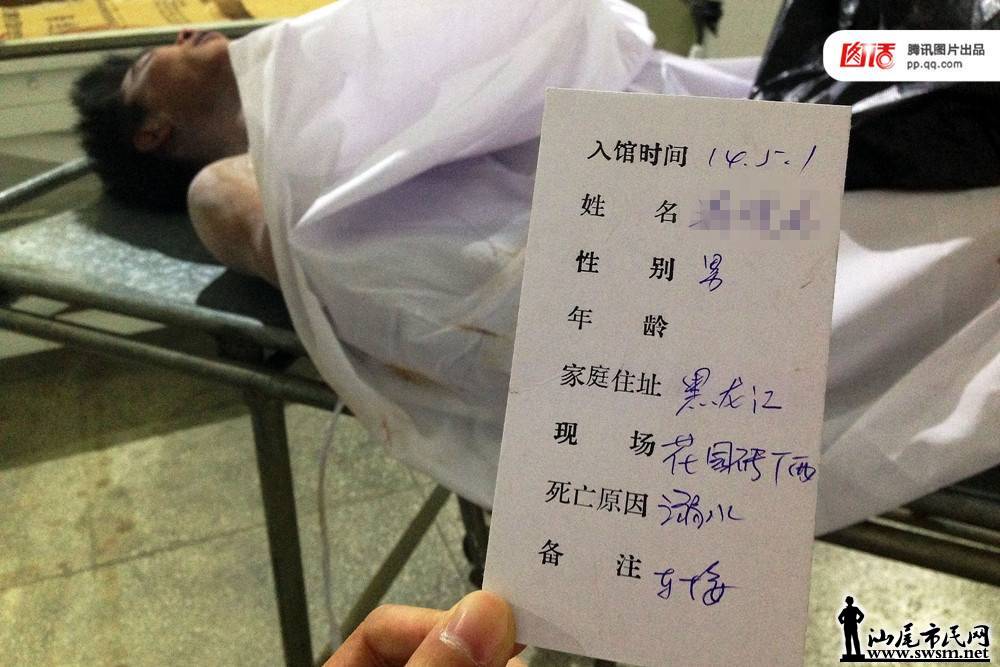 图话
腾讯图片出品
pp.qq.com
入馆时间 14.5.1
姓 名
性 别 男
年 龄
家庭住址 黑龙江
现 场 花园砖厂西
死亡原因 溺水
备 注
汕尾市民网
www.swsm.net